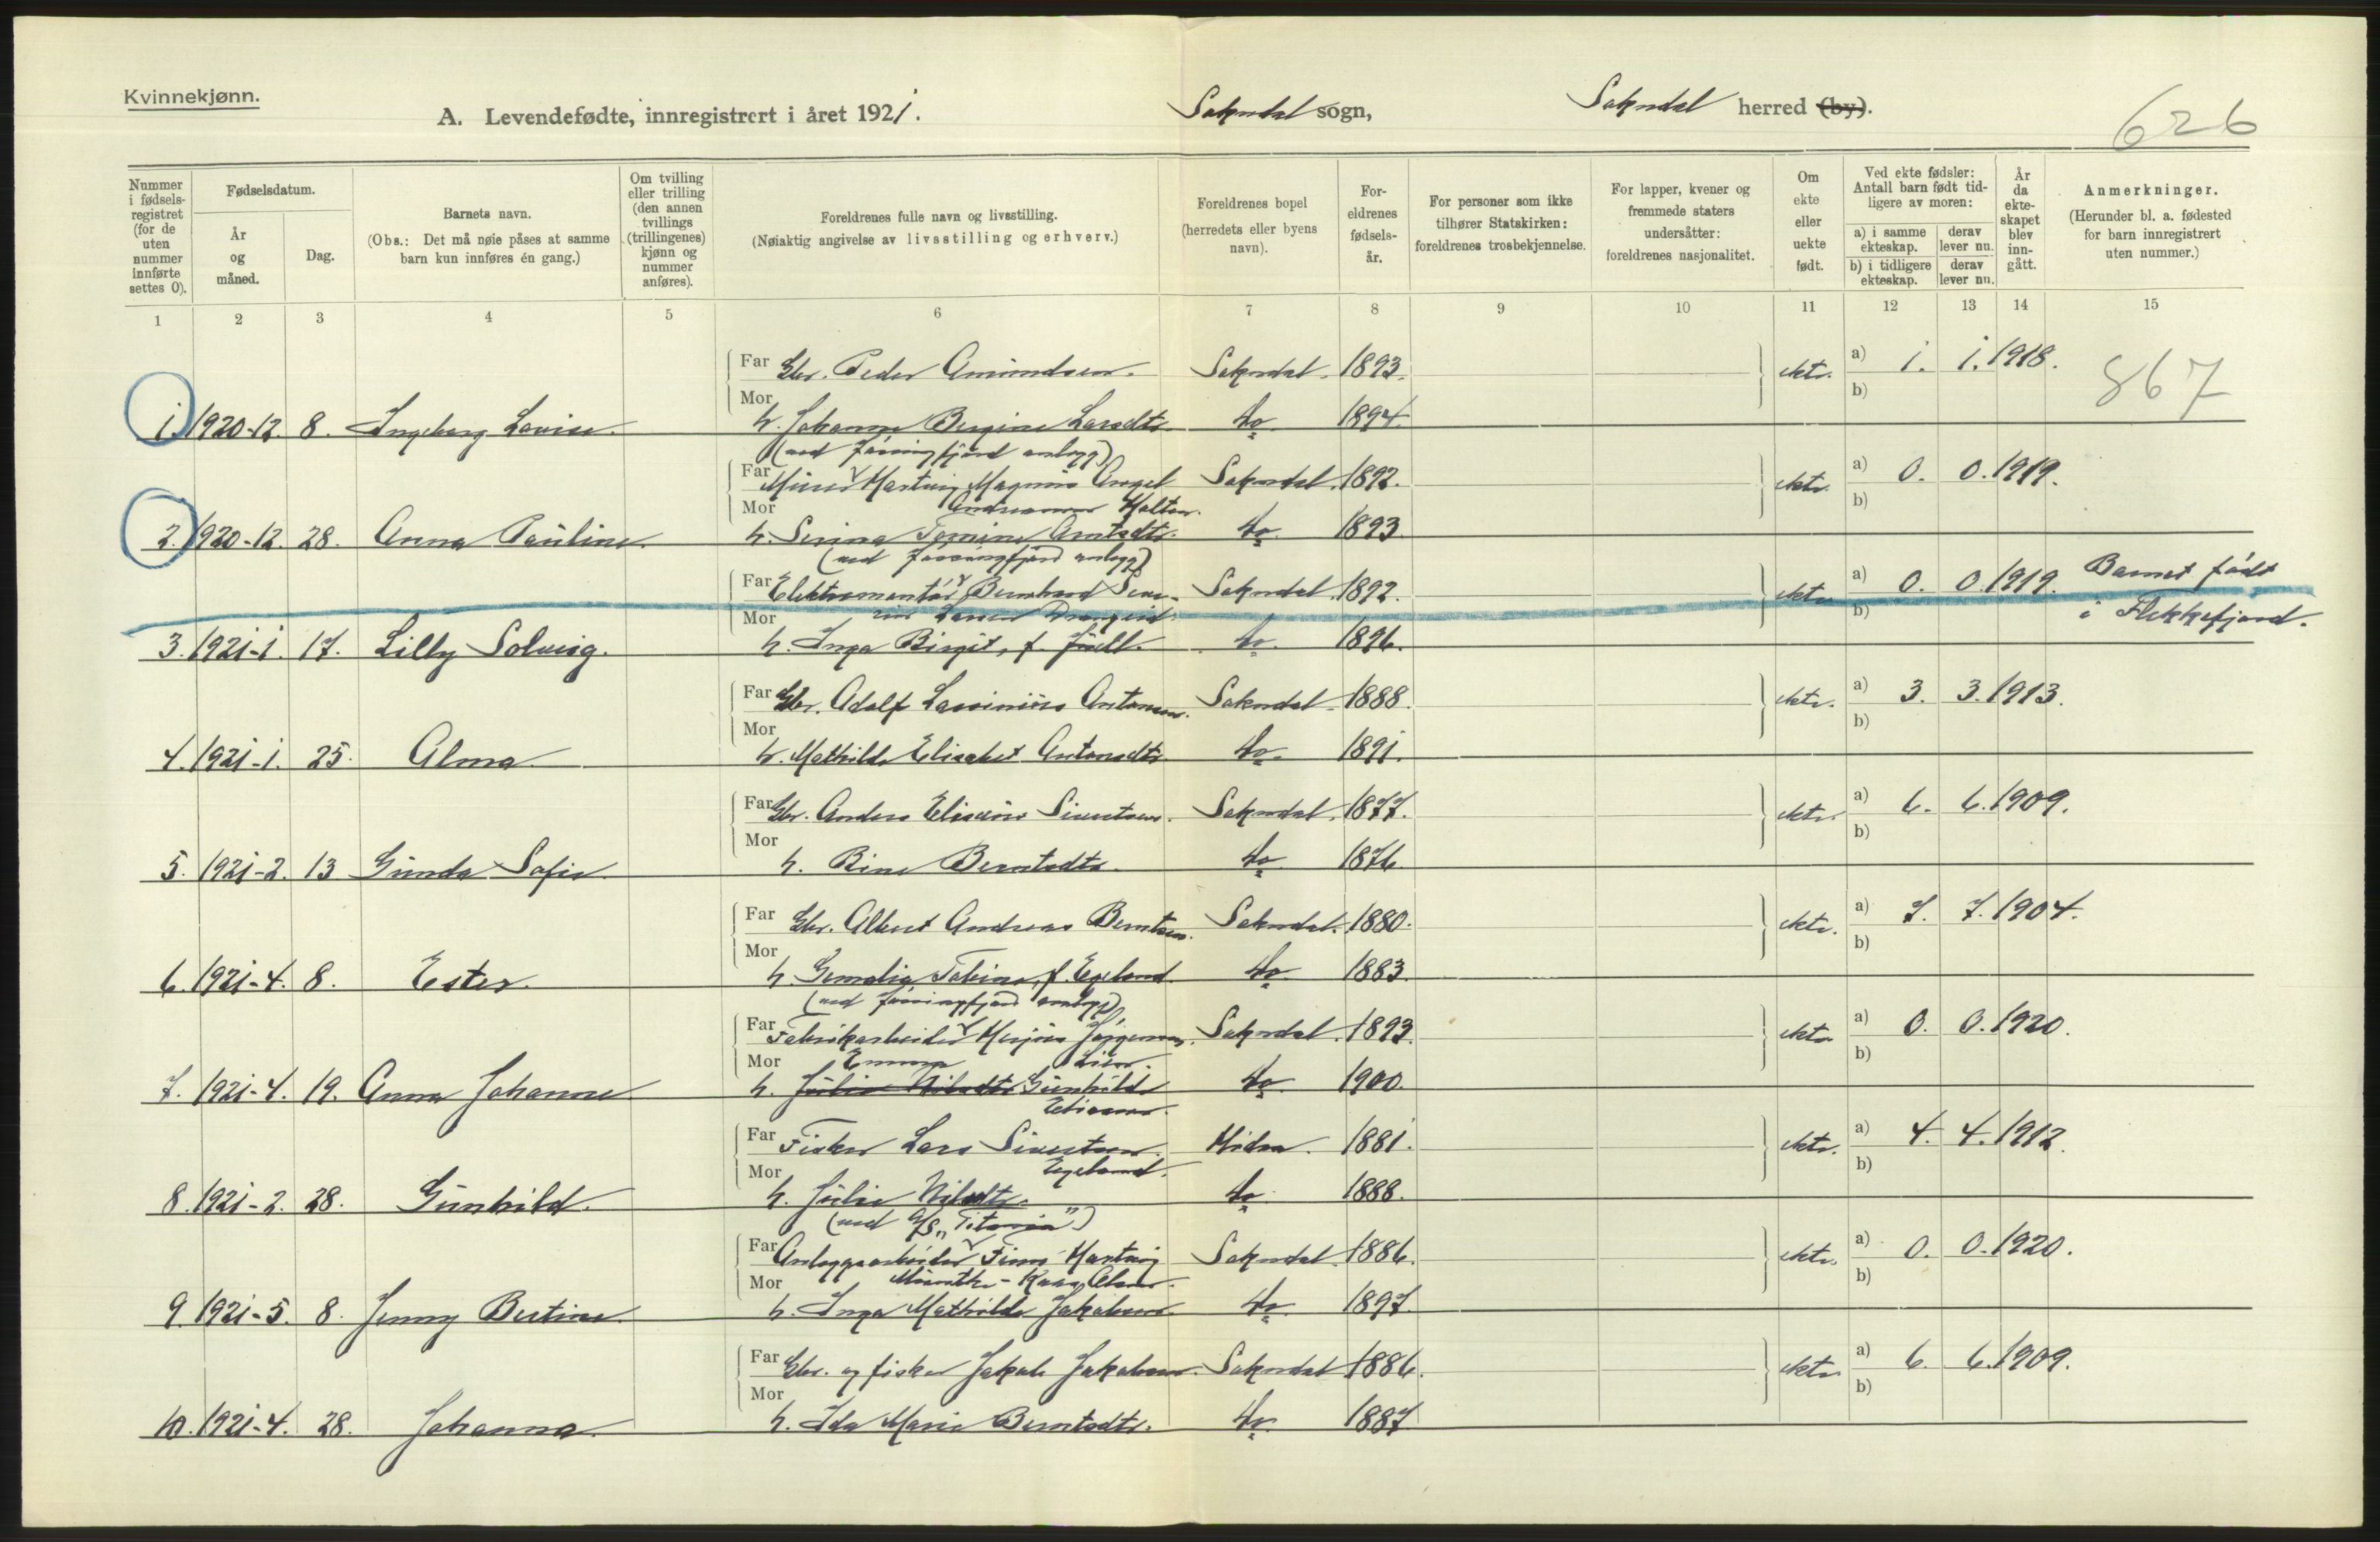 Kvinnekjønn.
A. Levendefødte, innregistrert i året 1921. Sokndal sogn, Sokndal herred (by).
626
Nummer i fødselsregistret (for de uten nummer innførte settes 0).
Fødselsdatum.
År og måned.
Dag.
Barnets navn.
(Obs.: Det må nøie påses at samme barn kun innføres én gang.)
Om tvilling eller trilling (den annen tvillings (trillingenes) kjønn og nummer anføres).
Foreldrenes fulle navn og livsstilling.
(Nøiaktig angivelse av livsstilling og erhverv.)
Foreldrenes bopel (herredets eller byens navn).
Foreldrenes fødselsår.
For personer som ikke tilhører Statskirken: foreldrenes trosbekjennelse.
For lapper, kvener og fremmede staters undersåtter: foreldrenes nasjonalitet.
Om ekte eller uekte født.
Ved ekte fødsler: Antall barn født tidligere av moren:
a) i samme ekteskap. derav lever nu.
b) i tidligere ekteskap. derav lever nu.
År da ekteskapet blev inngått.
Anmerkninger.
(Herunder bl. a. fødested for barn innregistrert uten nummer.)
1 2 3 4 5 6 7 8 9 10 11 12 13 14 15
Far Gbr. Peder Amundsen. Sokndal. 1893. ekte. a) 1. 1. 1918. 867
Mor b)
1. 1920-12. 8. Ingeborg Lovise. h. Johanne Bergine Larsdtr. do 1894.
(ved Jøssingfjord anlegg)
Far Minør Hartvig Magnus Angel Sokndal. 1892. ekte. a) 0. 0. 1919.
Mor b)
2. 1920-12. 28. Anna Pauline. h. Serina Tomine Arntsdtr. do 1893.
(ved Jøssingfjord anlegg)
Far Elektromontør Bernhard Sokndal. 1892. ekte a) 0. 0. 1919. Barnet født
Mor Larsen b) i Flekkefjord.
3. 1921-1. 17. Lilly Solveig. h. Inga Birgit, f. do. 1896.
Far Gbr. Adolf Lassinius Antonsen. Sokndal. 1888. ekte. a) 3. 3. 1913.
Mor b)
4. 1921-1. 25. Alma h. Mathilde Elisabet Antonsdtr. do. 1891.
Far Gbr. Anders Eliseus Sivertsen. Sokndal. 1877. ekte. a) 6. 6. 1909.
Mor b)
5. 1921-2. 13 Gunda Sofie h. Rine Berntsdtr. do 1876.
Far Gbr. Albert Andreas Berntsen. Sokndal. 1880. ekte. a) 7. 7. 1904.
Mor b)
6. 1921-4. 8. Ester. h. Tobine, f. Egeland do 1883.
(ved Jøssingfjord anlegg)
Far Fabrikarbeider Jørgensen. Sokndal. 1893. ekte a) 0. 0. 1920.
Mor Emma b)
7. 1921-4. 19. Anna Johanne h. Julie Nilsdtr Gunhild do 1900.
Far Fisker Lars Sivertsen. Hidra. 1881. ekte. a) 4. 4. 1912.
Mor Egeland. b)
8. 1921-2. 28. Gunhild. h. Julie Nilsdtr. do. 1888.
(ved A/S "Titania")
Far Anleggsarbeider Finn Hartvig Sokndal. 1886. ekte. a) 0. 0. 1920.
Mor Munthe-Kaas b)
9. 1921-5. 8. Jenny Bertine h. Inga Mathilde Jakobsen do. 1897.
Far Gbr. og fisker Jakob Jakobsen. Sokndal 1886. ekte a) 6. 6. 1909.
Mor b)
10. 1921-4. 28. Johanna h. Ida Marie Berntsdtr. do. 1887.